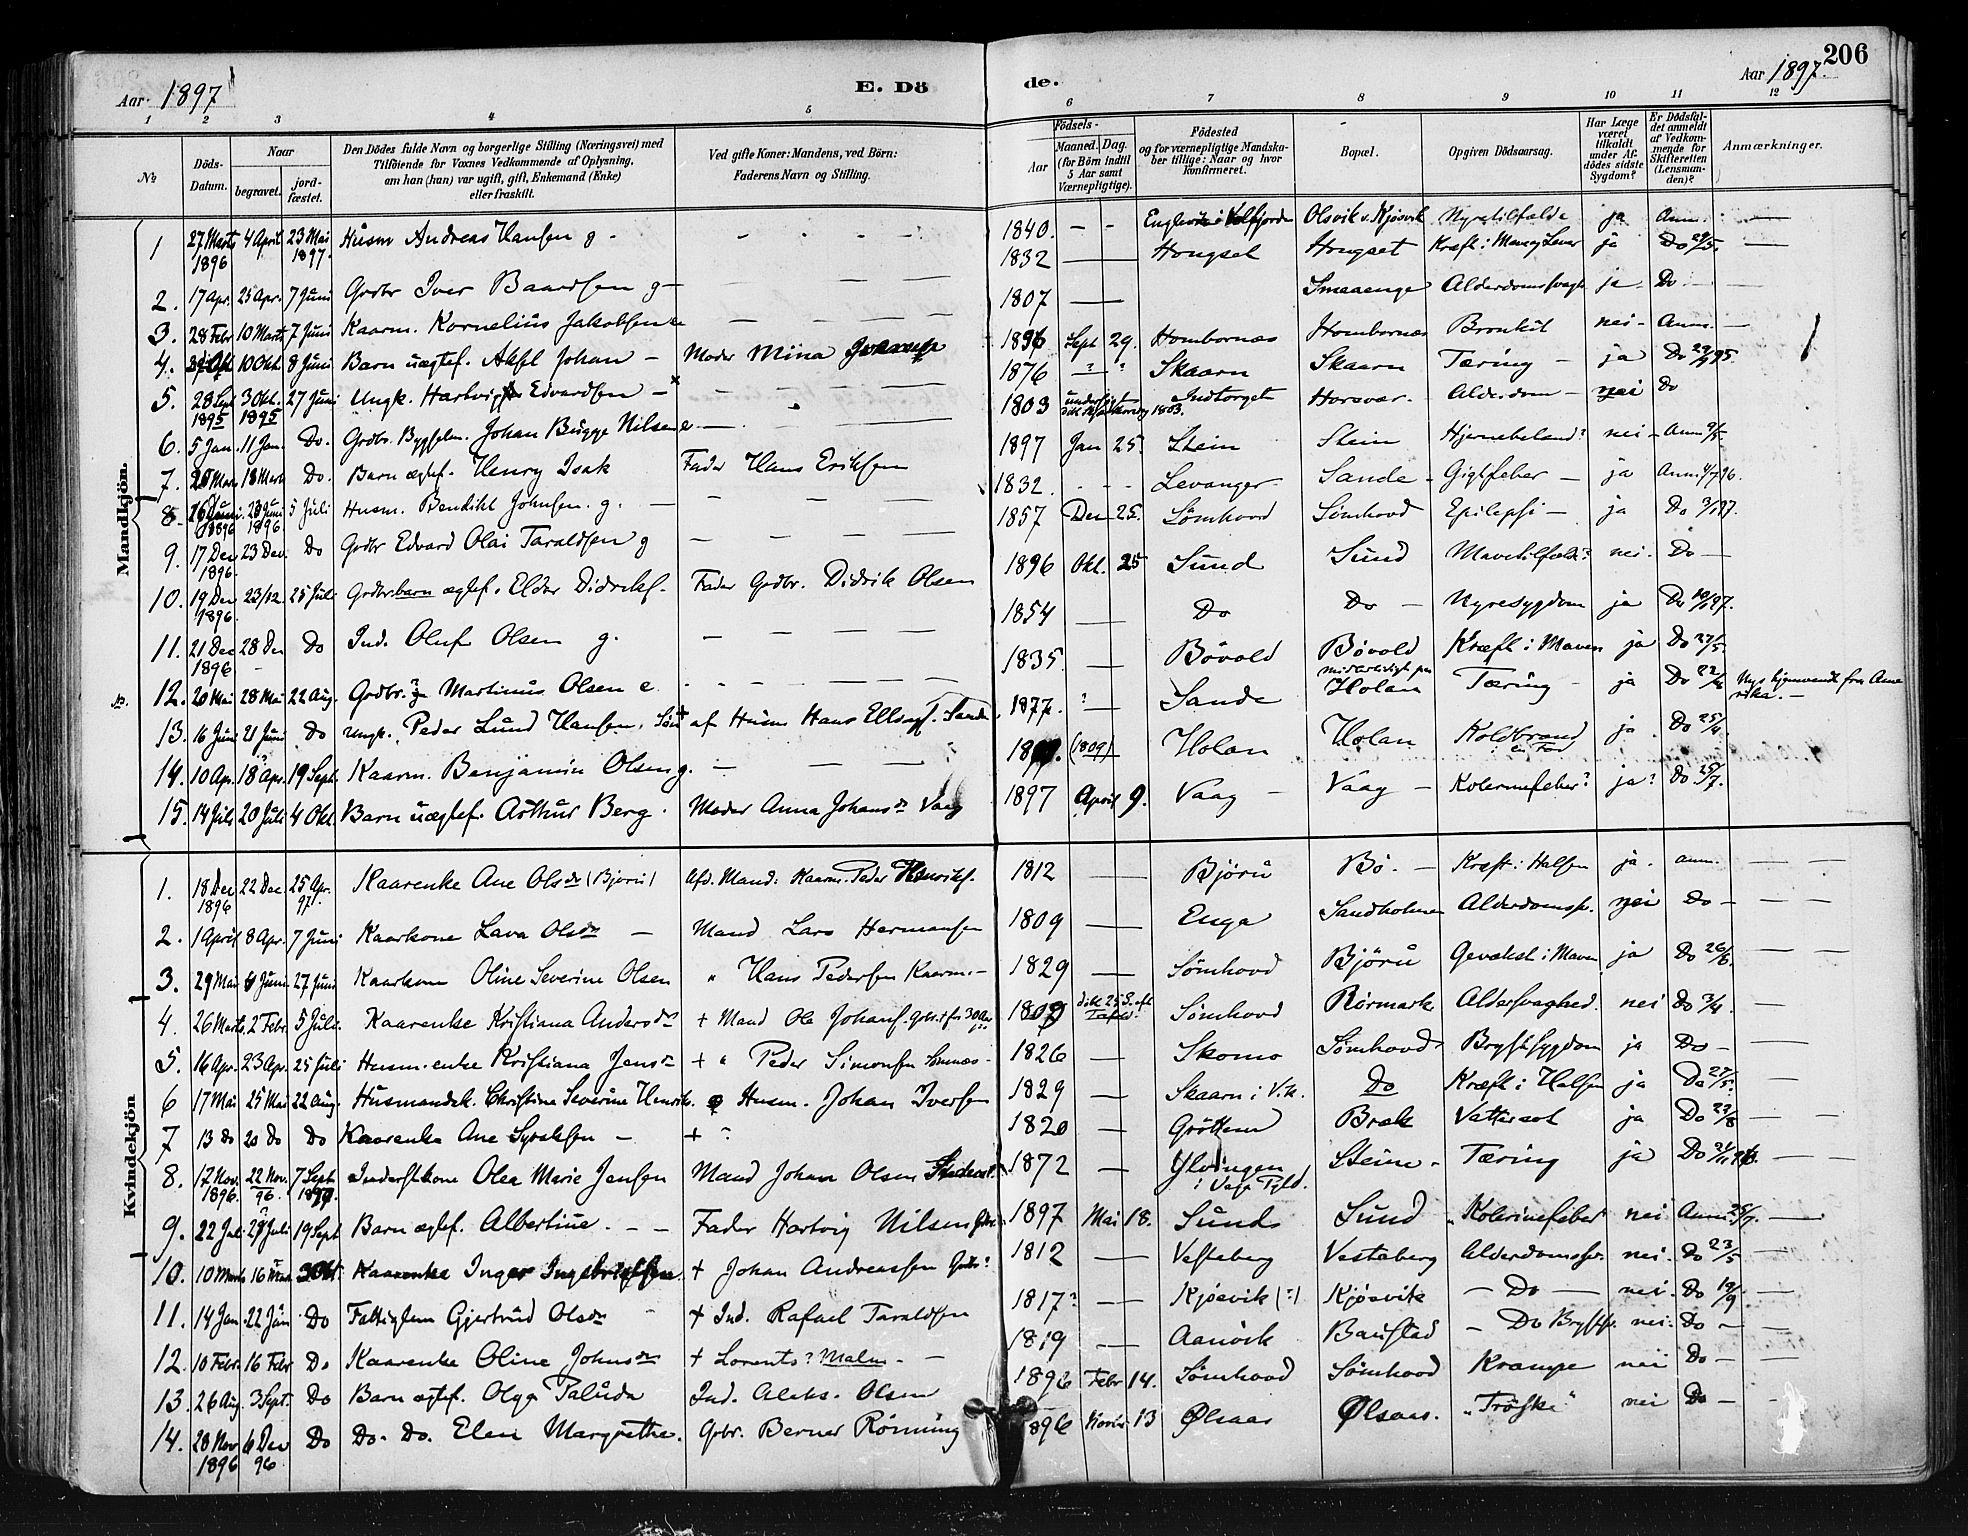 206
Aar 1897
E. Dö
de.
Aar 1897.
1 2 3 4 5 6 7 8 9 10 11 12
№
Döds-Datum.
Naar
begravet.
jord-fæstet.
Den Dödes fulde Navn og borgerlige Stilling (Næringsvei) med
Tilföiende for Voxnes Vedkommende af Oplysning,
om han (hun) var ugift, gift, Enkemand (Enke)
eller fraskilt.
Ved gifte Koner: Mandens, ved Börn:
Faderens Navn og Stilling.
Födsels-
Aar
Maaned. Dag.
(for Börn indtil
5 Aar samt
Værnepligtige).
Födested
og for værnepligtige Mandska-
ber tillige: Naar og hvor
konfirmeret.
Bopæl.
Opgiven Dödsaarsag.
Har Læge
været
tilkaldt
under Af-
dödes sidste
Sygdom?
Er Dödsfal-
det anmeldt
af Vedkom-
mende for
Skifteretten
(Lensman-
den)?
Anmærkninger.
Mandkjön.
1 27 Marts 1896 4 April 23 Mai 1897. Husm Andreas Hansen g - 1840. - - Olsvik v. Kjøsvik Nyretilfælde ja Anm. —
1832 — Hongset Hongset Kræft i Mave og Lever ja Do 29/5. —
2. 17 Apr. 25 Apr. 7 Juni Grdbr Iver Baardsen g - 1807 — Smaaenge Alderdomssvagh. ja Do —
3. 28 Febr 10 Marts 7 Juni Kaarm. Kornelius Jakobsen e 1896 Sept 29. Hombornæs Hombornæs Bronkit nei - Anm. —
4. 10 Okt. 8 Juni Barn uægtef. Aksel Johan - Moder Mina 1876 ? ? Skaarn Skaarn Tæring - ja Do
5. 28 Sept 1895 3 Okt. 1895 27 Juni Ungk. Hartvig Edvardsen - 1803 Indtorget Horsvær. Alderdom - nei Do
6. 5 Jan. 11 Jan. Do. Grdbr. Bygselm. Johan Bugge Nilsen e - 1897 Jan 25. Stein Stein Hjernebetænd? nei - Anm 9/5.
7. 18 Mars Do. Barn ægtef. Henry Isak Fader Hans Eriksen 1832. Levanger Sande - Gigtfeber - ja Anm
8 16 Juni 1896 23 Juni 1896. 5 Juli Husm. Bendikt Johnsen. g. - 1857 Den 25. Sømhovd Sømhovd Epilepsi - ja Do
9. 17 Dec 1896. 23 Dec. Do Grdbr Edvard Olai Taraldsen g 1896 Okt. 25 Sund Sund Mavetilfælde? nei. Do —
10. 19 Dec 1896. 23/12. 25 Juli Grdbr.barn ægtef. Eldor Didriks. Fader Grdbr. Didrik Olsen 1854 — Do Do — Nyresygdom ja Do
11. 21 Dec 1896 28 Dec Do Ind. Oluf Olsen g. 1835. — Bøvold Bøvold Kræft i Maven ja Do 27/5.
12. 20 Mai 28 Mai 22 Aug. Grdbr. Martinus Olsen e. 1877. ? — Sande Holan Tæring - ja Do Nys hjemvendt fra Amerika. —
13. 16 Juni 21 Juni Do Ungk. Peder Lund Hansen. Søn af Husm Hans Ellings. Sande (1809) Holan Holan Koldbrand i en Fod ja. Do 25/4.
14. 10 Apr. 18 Apr. 19 Sept. Kaarm. Benjamin Olsen g. 1897 April 9. Vaag — Vaag — Kolerinefeber? ja? Do 25/7.
15. 14 Juli 20 Juli 4 Okt. Barn uægtef. Arthur Berg. Moder Anna Johansdr Vaag
Kvindekjön
1. 18 Dec 1896 22 Dec. 25 Apr. 97. Kaarenke Ane Olsdr (Bjøru) Afd. Mand: Kaarm. Peder Henriks. 1812 — Bjøru Bø. — Kræft i Halsen ja. anm. —
2. 1 April 8 Apr. 7 Juni Kaarkone Lava Olsdr — Mand Lars Hermansen 1809 — Enga Sandholmen Alderdomssv. nei Do —
3. 29 Mai 4 Juni. 27 Juni Kaarkone Oline Severine Olsen " Hans Pedersen Kaarm. - 1829 — Sømhovd Bjøru Gevækst i Maven ja Do 26/6.
4. 26 Marts. 2 Febr. 5 Juli. Kaarenke Kristiana Andersdr + Mand Ole Johans. 1809 Sømhovd Rørmark Aldersvaghed. nei Do 3/4.
5. 16 Apr. 23 Apr. 25 Juli Husm.enke Kristiana Jensdr + " Peder Simonsen Sømnæs - 1826 — Skomo Sømhovd Brystsygdom ja Do —
6 17 Mai 25 Mai 22 Aug. Husmandsk. Christine Severine Henrik. Husm. Johan Iversen 1829 — Skaarn i Vik. Do Kræft i Halsen ja Do 27/5.
7 13 Do 20 Do Do Kaarenke Ane Syvertsen - + ? 1820 — Grøttem Bræk Vattersot ja Do 23/8 —
8. 17 Nov. 1896. 22 Nov. 96 7 Sept 1897. Inderstkone Olea Marie Jensen Mand Johan Olsen 1872 — Ylvingen i Vega Pgld. Steine - Tæring ja Do
9. 22 Juli 29 Juli 19 Sept Barn ægtef. Albertine. - - Fader Hartvig Nilsen 1897 Mai 18. Sund Sund "Kolerinefeber" nei Anm 25/7. —
10. 10 Marts 16 Mar. 3 Okt. Kaarenke Inger Ingebrigtsen. + Johan Andreassen Grdbr? 1812 — Vesteberg Vesteberg Alderdomssv. nei. Do 23/5 —
11. 14 Jan 22 Jan Do Fattiglem Gjertrud Olsdr + Ind. Rafael Taraldsen 1817? — Kjøsvik (?) Kjøsvik — Do — nei. Do 19/9. —
12. 10 Febr. 16 Febr Do Kaarenke Oline Johnsdr + Lorents? Malm. - 1819 — Aanvik Baustad — Do Brystsv. nei. Do —
13. 26 Aug. 3 Sept. Do Barn ægtef. Olga Paluda Ind. Aleks. Olsen 1896 Febr 14. Sømhovd Sømhovd Krampe nei Do —
14. 20 Nov 1896 6 Dec 96 Do Do. Do. Elen Margrethe. Grbr. Berner Rønning 1896 Novbr. 13 Ølsaas Ølsaas. "Trøske" nei Do —